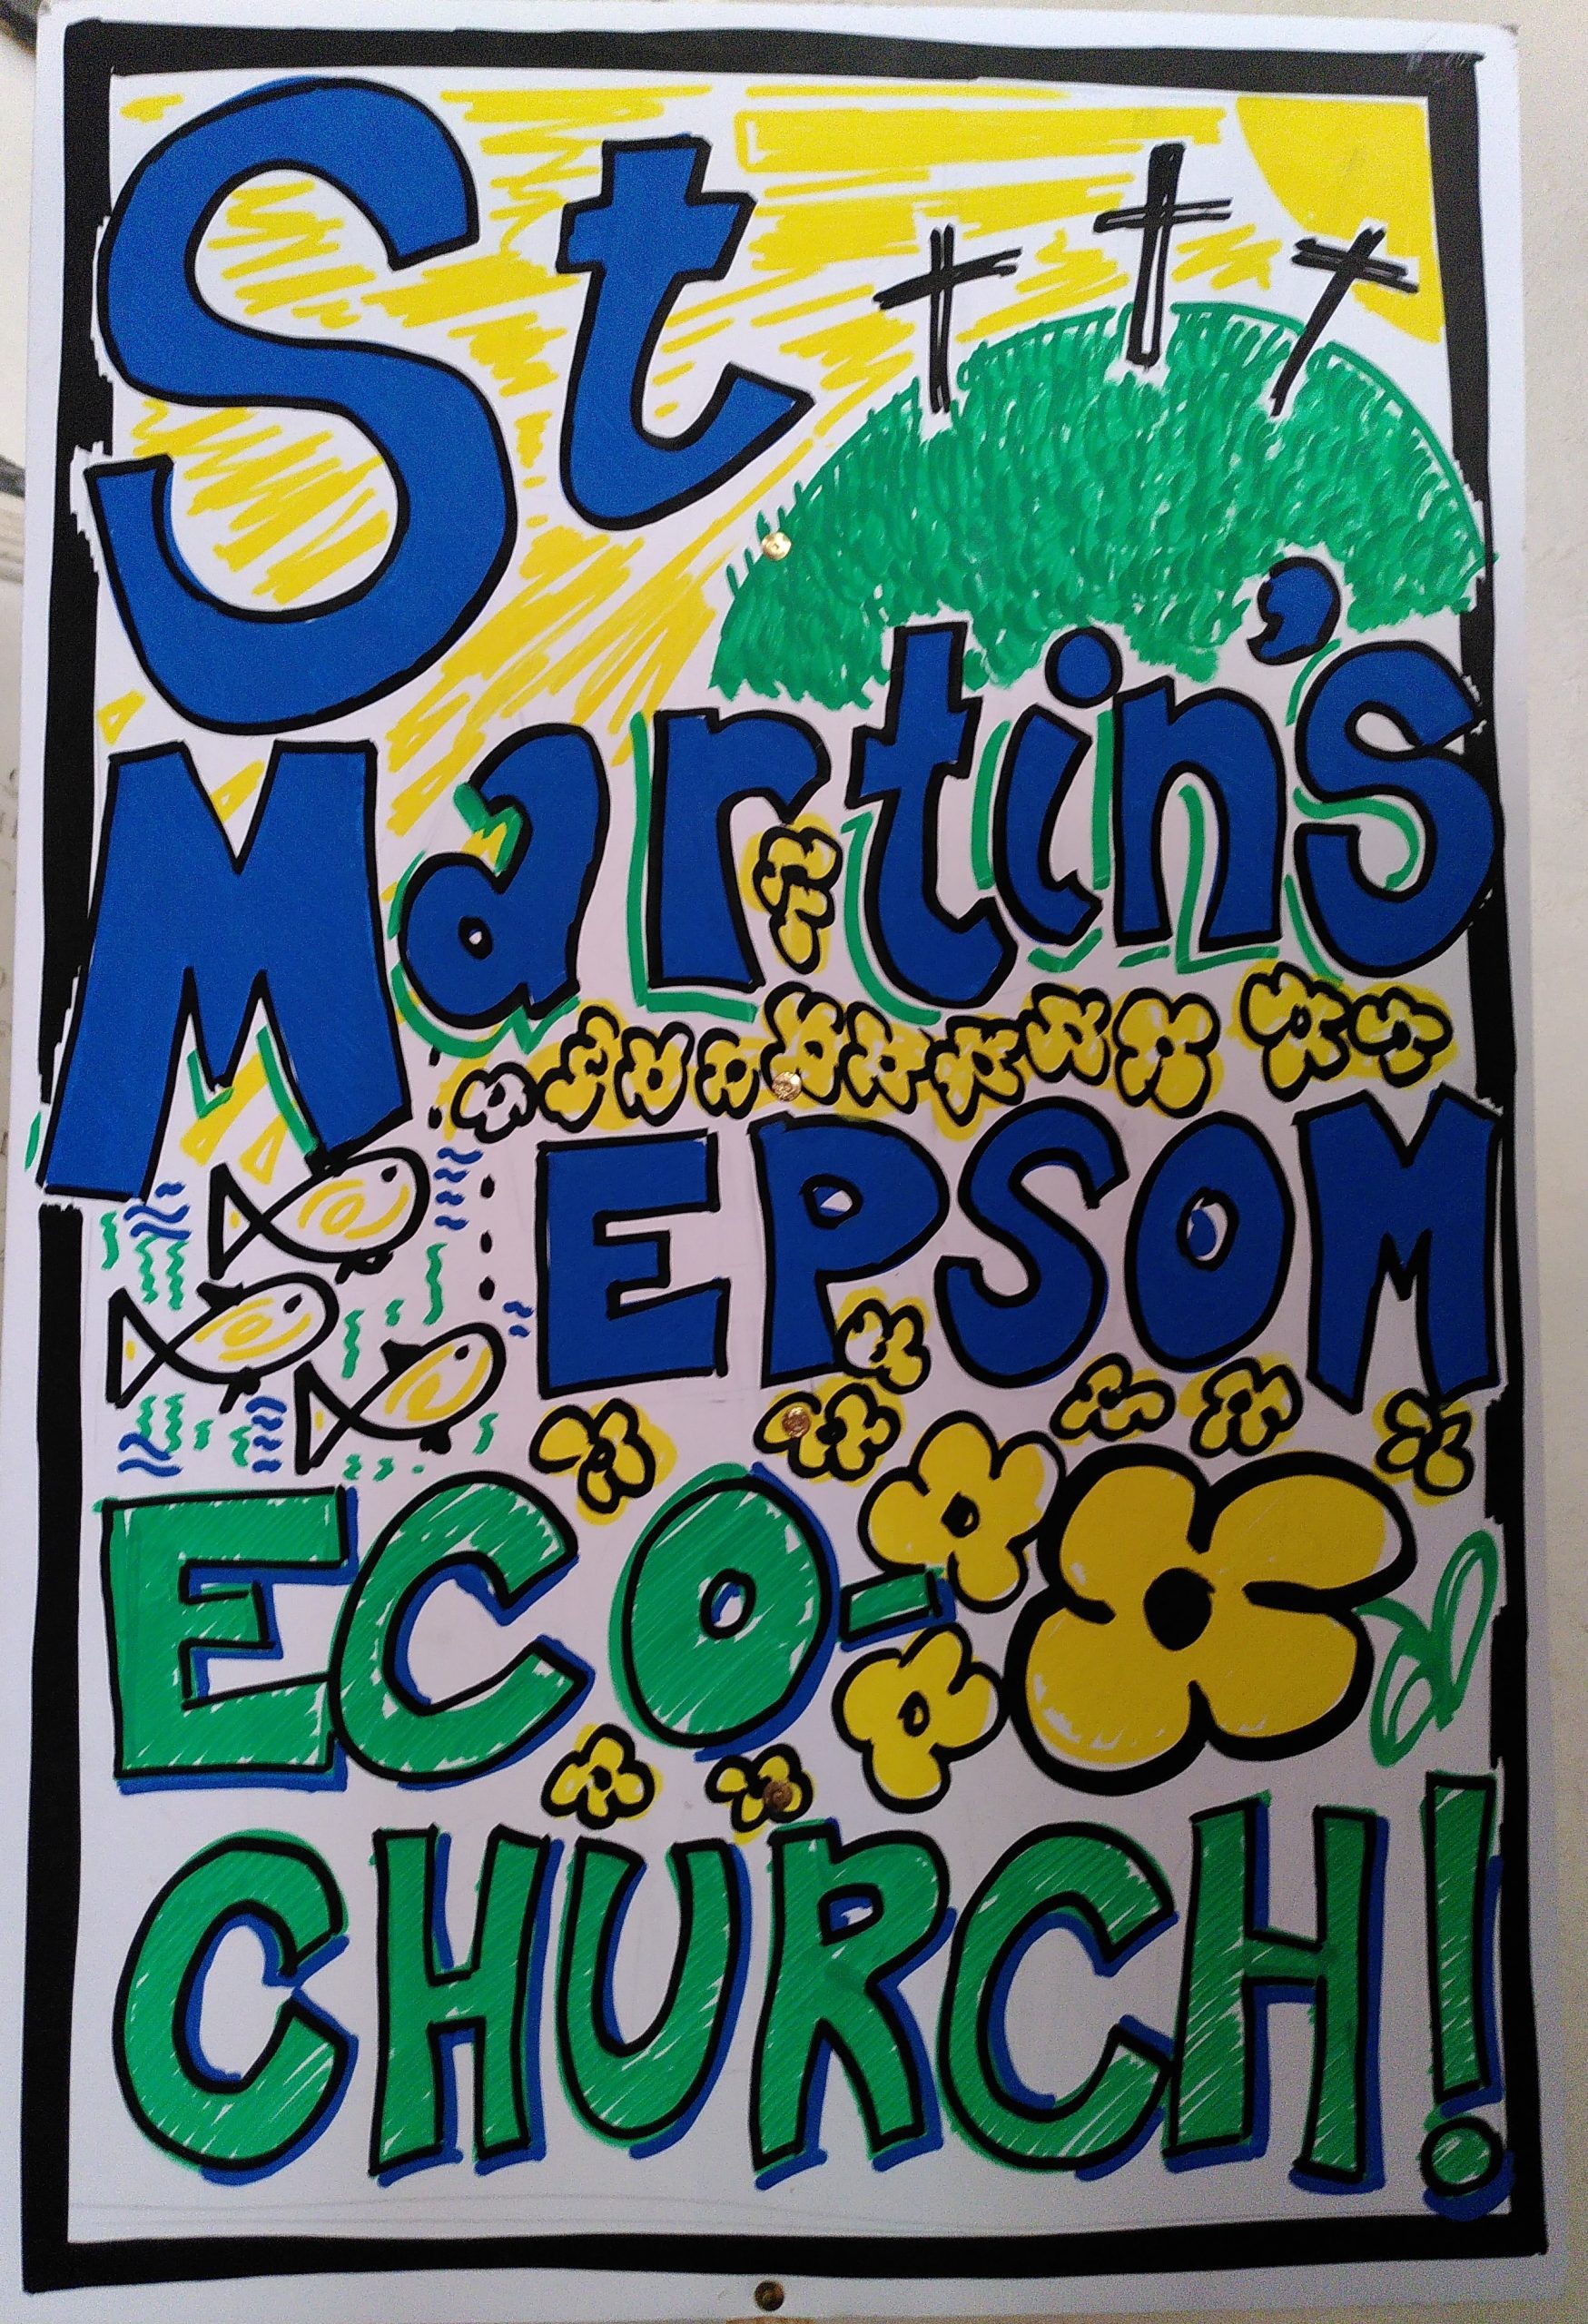 St
Martin's
EPSOM
ECO-
CHURCH!